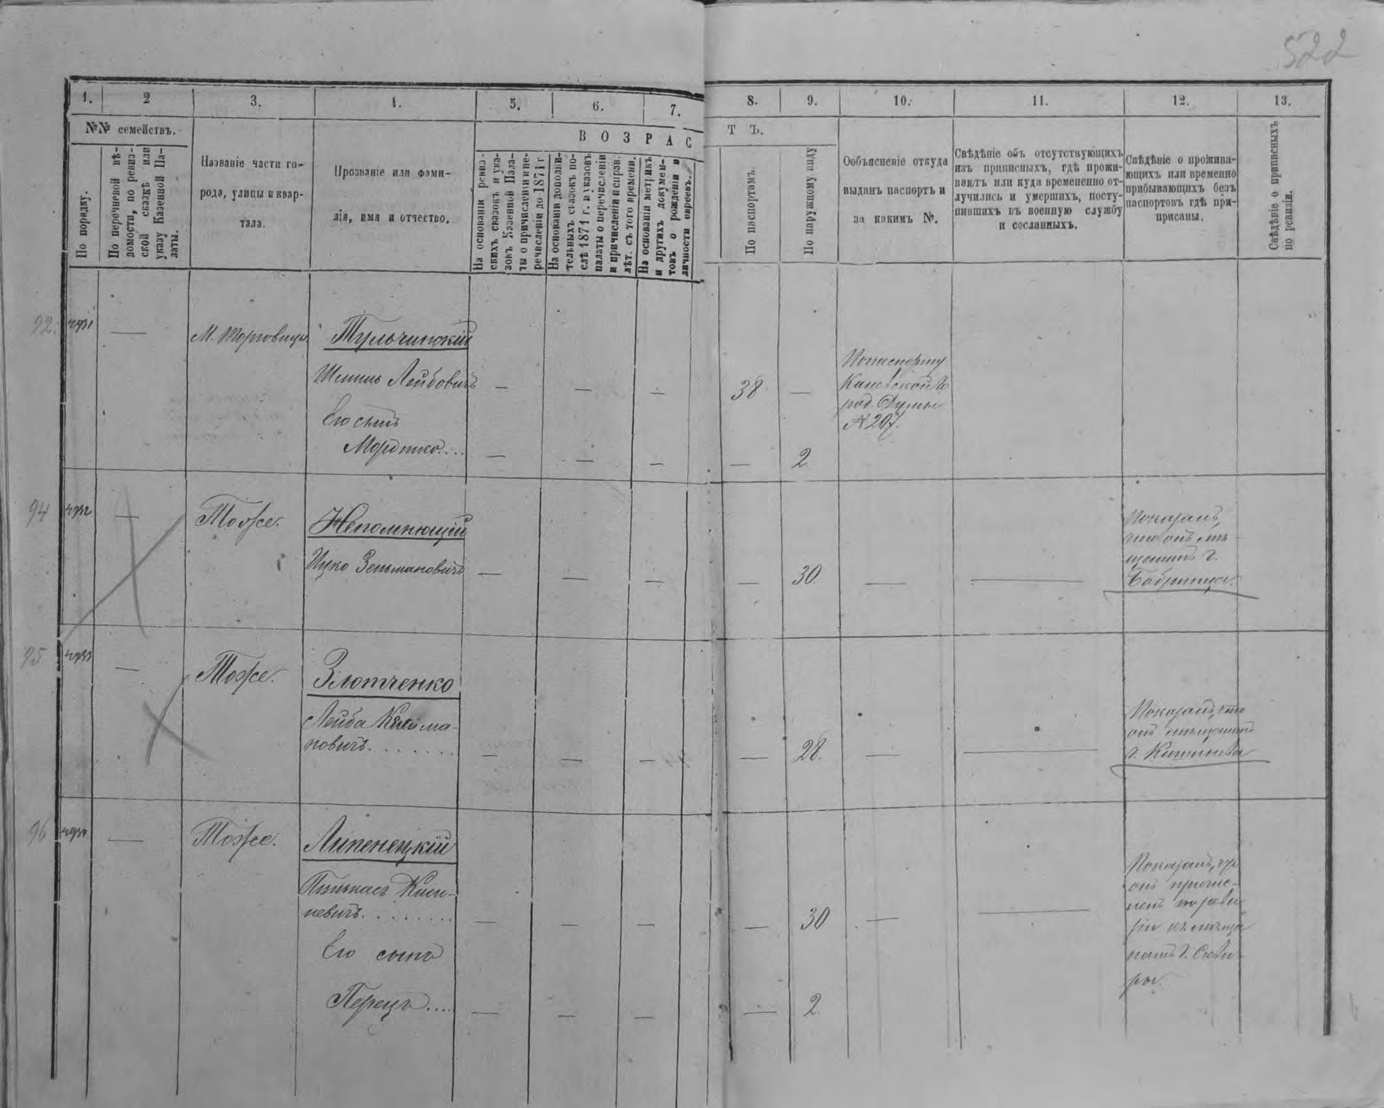 522
1.
2
3.
4.
5.
6.
7.
8.
9.
10.
11.
12.
13.
№№ семействъ.
ВОЗРАС
ТЪ.
По порядку.
По перечневой вѣ-
домости, по ревиз-
ской сказкѣ или
указу Казенной Па-
латы.
Названіе части го-
рода, улицы и квар-
тала.
Прозваніе или фами-
лія, имя и отчество.
На основаніи ревиз-
скихъ сказокъ и ука-
зовъ Казенной Пала-
ты о причисленіи и пе-
речисленіи до 1871 г
На основаніи дополни-
тельныхъ сказокъ по-
слѣ 1874 г. и указовъ
палаты о перечисленіи
и причисленіи и справ.
лѣт. съ того времени.
На основаніи метрикъ
и другихъ докумен-
товъ о рожденіи и
личности евреевъ.
По паспортамъ.
По наружному виду
Объясненіе откуда
выданъ паспортъ и
за какимъ №.
Свѣдѣніе объ отсутствующихъ
изъ приписныхъ, гдѣ прожи-
ваютъ или куда временно от-
лучились и умершихъ, посту-
пившихъ въ военную службу
и сосланныхъ.
Свѣдѣніе о прожива-
ющихъ или временно
прибывающихъ безъ
паспортовъ гдѣ при-
приcаны.
Свѣдѣніе о приписныхъ
по ревизіи.
М. Торговица
Тульчинскій
Лейбовичъ
Его сынъ
Мордико....
38
2
По паспорту
Каневской Го
род. Думы
№ 207.
94
Тоже.
Непомнющій
Ицко Зельмановичъ
30
Показалъ,
что онъ мѣ-
щанинъ г.
Бобринца.
95
Тоже.
Злотченко
Лейба Кельма-
новичъ.......
28.
Показалъ, что
онъ мѣщанинъ
г. Кишинева
96
Тоже.
Липенецкій
Пинькасъ
невичъ.......
30
Его сынъ
Перецъ....
2
Показалъ, что
онъ причис-
ленъ по реви-
зіи къ мѣща
намъ г. Сквы-
ры.